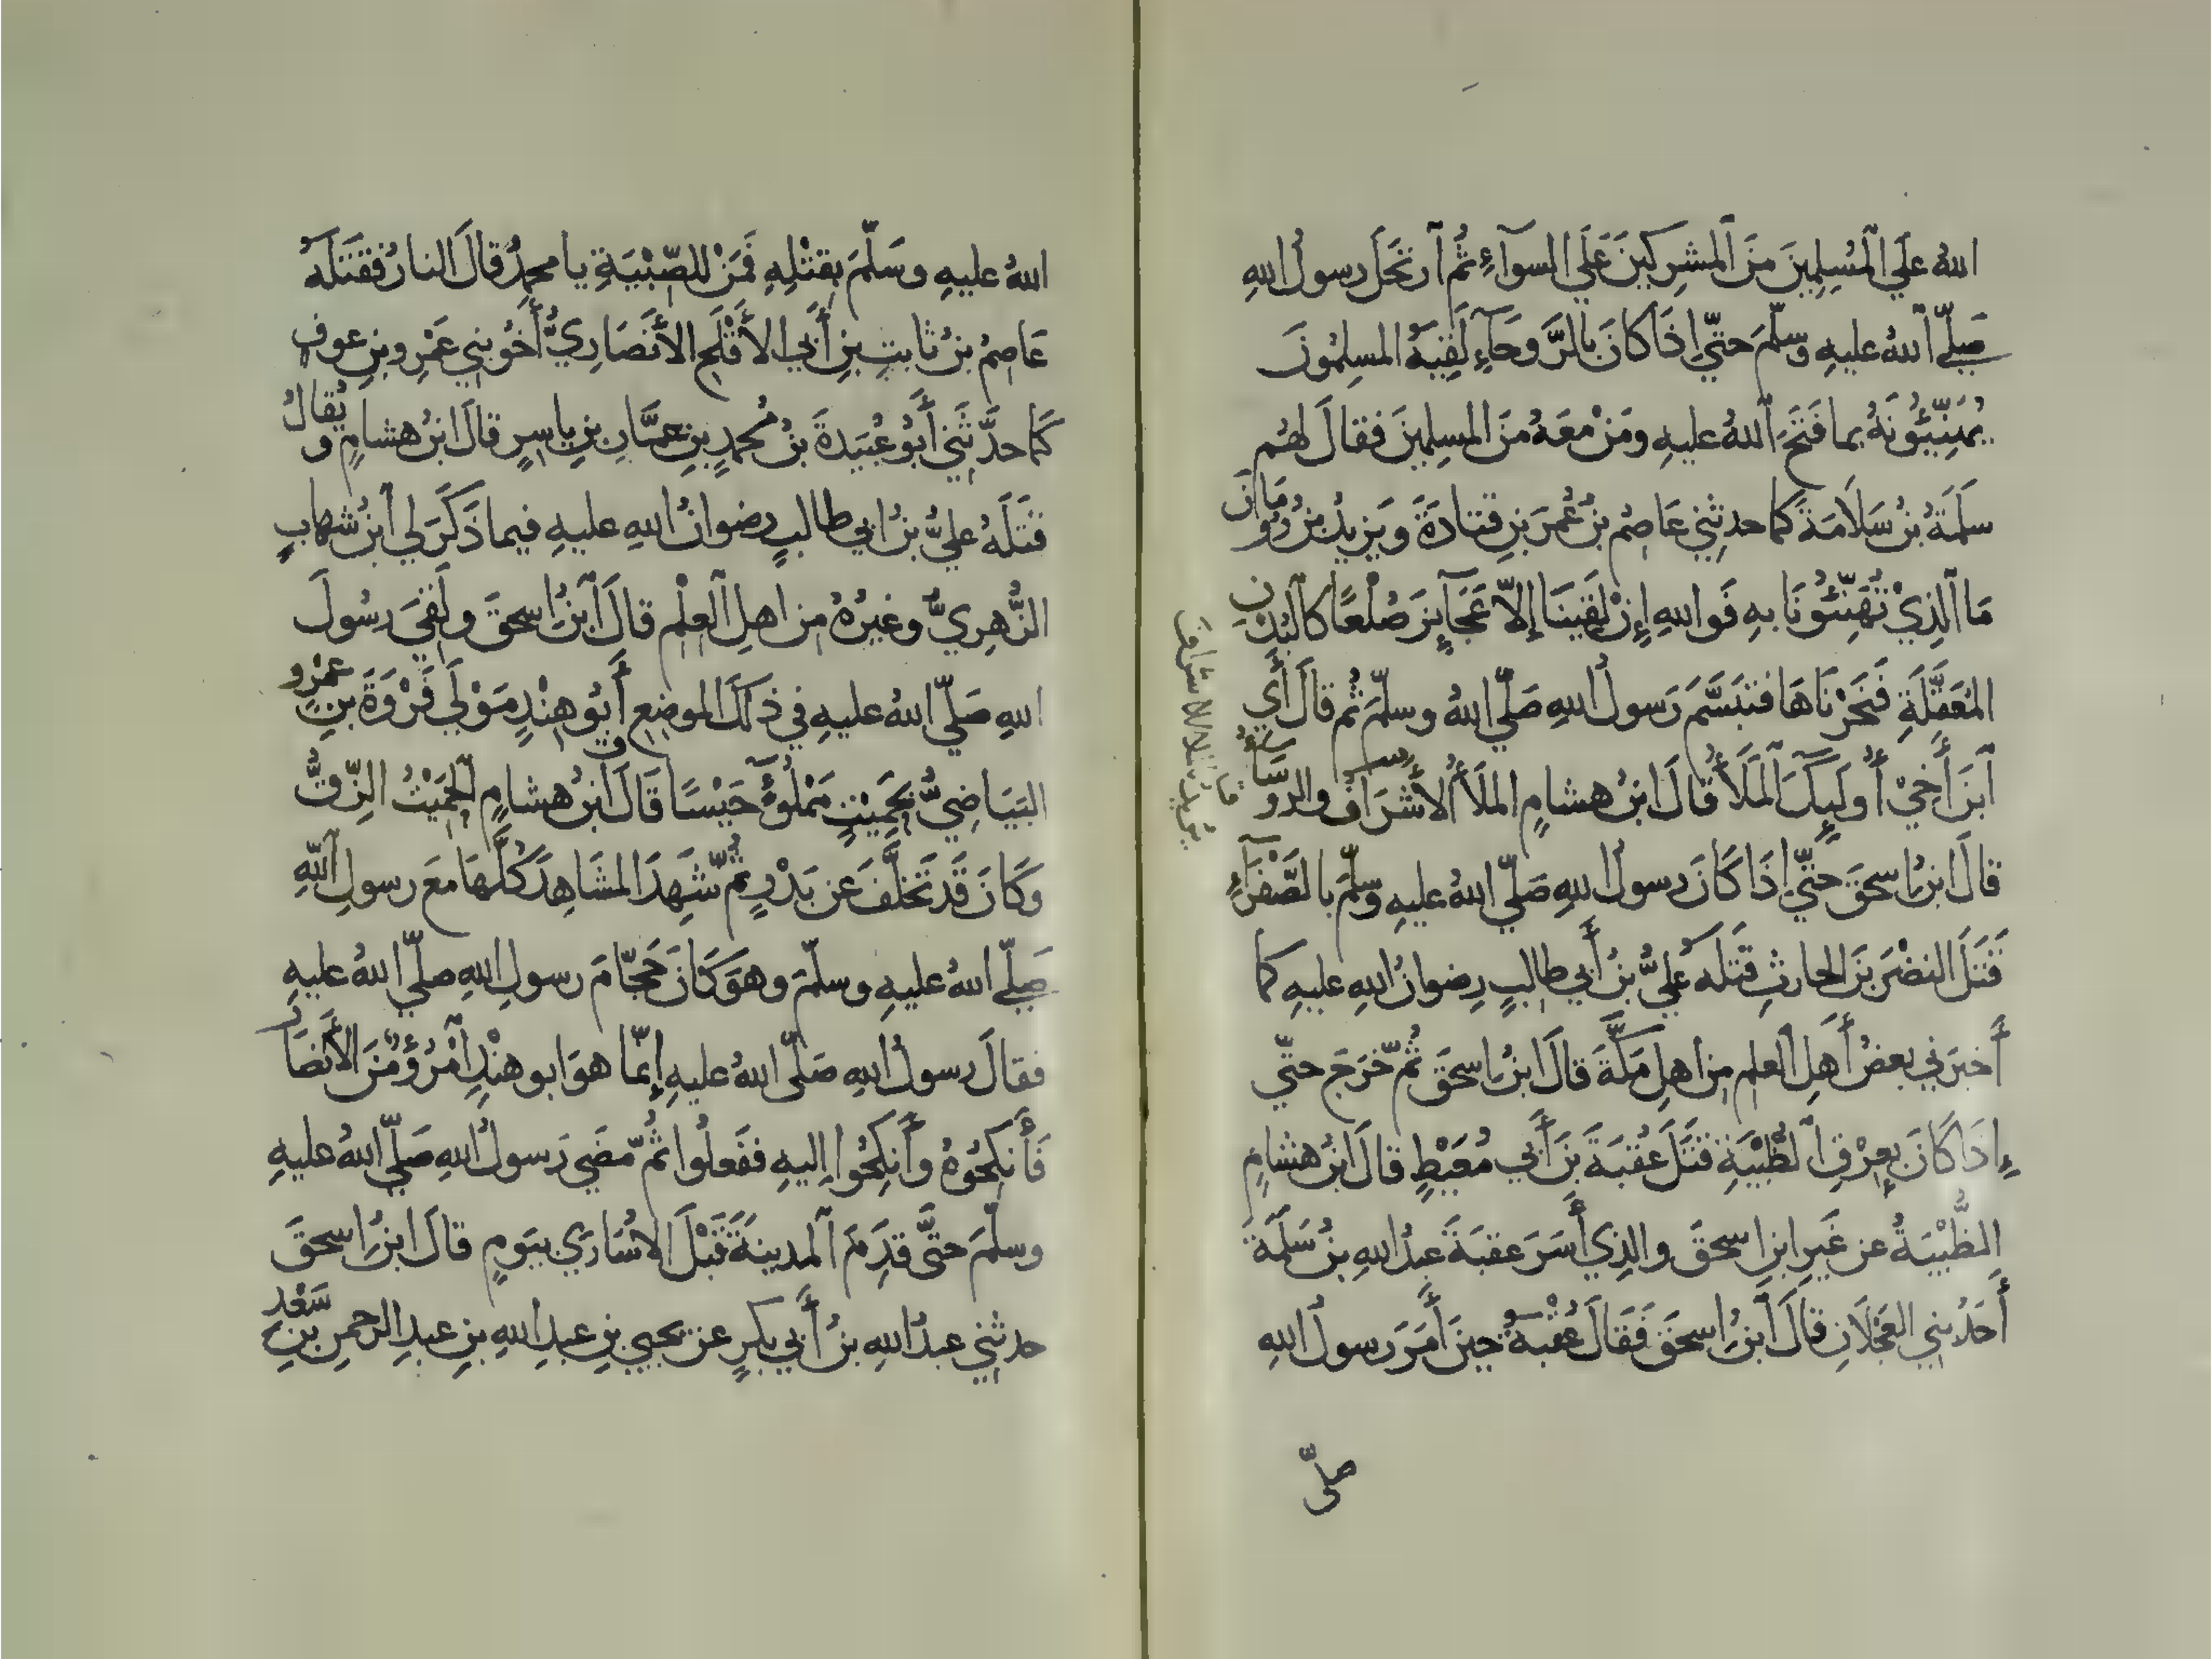 اللهُ عَلَي الْمُسْلِمِينَ مِنَ الْمشرِكِينَ عَلَي السوَآءِ ثُمَّ آرتَحَلَ رسولُ اللهِ
صَلَّي اللهُ عليهِ وسلّمَ حتّي اِذَا كانَ بالرَّوحَآءِ لَقِيَهُ المسلِمُونَ
يُهَنِّيُونَهُ بما فَتَحَ اللهُ عليهِ ومَنْ مَعَهُ مِنَ المسلِمِينَ فقالَ لهُم
سَلَمَةُ بنُ سَلَامَةَ كما حدثني عَاصِمُ بنُ عُمَرَ بنِ قتادَةَ ويَزِيدُ بنُ رُومَانَ
مَا الَّذِيْ تُهَنِّئُونَا بهِ فَواللهِ إنْ لَقِينَا إلاّ عَجَآيِزَ صُلْعًا كالبُدْنِ
المُعَقَّلَةِ فَنَحَرْنَاهَا فتبَسَّمَ رَسولُ اللهِ صَلّي اللهُ وسلّمَ ثُم قالَ أَي
اَبنَ أَخِيْ أُولَيِكَ الْمَلَأُ قالَ ابنُ هشامٍ الملَأُ الأَشرَافُ والرؤسَآءُ
قالَ ابنُ اسحقَ حتّي اِذَا كَانَ رسولُ اللهِ صَلّي اللهُ عليهِ وسلّمَ بالصَّفْرَآءِ
قَتَلَ النضْرَ بنَ الحارثِ قَتَلَهُ عَليُّ بنُ أَبي طالبٍ رِضوانُ اللهِ عليهِ كما
أَخبرَني بعضُ أَهلِ العلمِ مِن اهلِ مَكَّةَ قالَ ابنُ اسحقَ ثُمّ خَرَجَ حتّي
إِذَا كَانَ بِعِرْقِ الظُّبْيَةِ قَتَلَ عُقبَةَ بنَ أَبي مُعَيْطٍ قالَ ابنُ هشامٍ
الظُّبْيَةُ عن غَيرِ ابنِ اسحقَ والذِي أَسَرَ عقبَةَ عبدُ اللهِ بنُ سَلِمَةَ
أَحَدُ بني العَجْلَانِ قالَ ابنُ اسحقَ فَقَالَ عُقْبَةُ حِينَ أَمَرَ رسولُ اللهِ
صلّي
اللهُ عليهِ وسَلّمَ بقتْلِهِ فَمَنْ للصِّبْيَةِ يا محمدُ قالَ النارُ فقتَلَهُ
عَاصِمُ بنُ ثابتِ بنِ أَبي الأَقْلَحِ الأَنصَارِيُّ أَخُو بني عَمْرِو بنِ عوفٍ
كَما حدَّثَني أَبُو عُبَيدةَ بنُ مُحمدِ بنِ عمّارِ بنِ ياسرٍ قالَ ابنُ هشامٍ ويُقالُ
قَتَلَهُ عليُّ بنُ ابي طالبٍ رضوانُ اللهِ عليهِ فيما ذَكَرَ لي ابنُ شهابٍ
الزُّهرِيُّ وغيرُهُ مِن اهلِ العِلْمِ قالَ ابنُ اسحقَ ولَقِيَ رسُولَ
اللهِ صَلّي اللهُ عليهِ في ذَلكَ الموضعِ أَبُو هِنْدٍ مَوْلَي فَرْوَةَ بنِ عَمْرٍو
البَيَاضِيُّ بحَمِيْتٍ مَمْلُوْءٍ حَيْسًا قَالَ ابنُ هشامٍ الحَمِيْتُ الزِّقُّ
وكَانَ قَد تَخَلَّفَ عن بَدْرٍ ثُمّ شَهِدَ المشَاهِدَ كُلَّهَا مَعَ رسولِ اللهِ
صَلّي اللهُ عليهِ وسلّمَ وهوَ كَانَ حَجّامَ رسولِ اللهِ صلّي اللهُ عليهِ
فقالَ رسولُ اللهِ صَلّى اللهُ عليهِ إنّما هوَ ابو هنْدٍ امْرُؤٌ مِنَ الأَنصَارِ
فَأَنكِحُوهُ وأَنكِحُوا اليهِ ففَعلُوا ثُمّ مَضَي رَسولُ اللهِ صَلّي اللهُ عليهِ
وسلّمَ حتَّى قَدِمَ المدينَةَ قَبْلَ الاُسَارَي بيَومٍ قالَ ابنُ اسحقَ
حدثني عبدُ اللهِ بنُ أَبي بكرٍ عن يحيي بنِ عبدِ اللهِ بنِ عبدِ الرحمنِ بنِ سَعْدِ